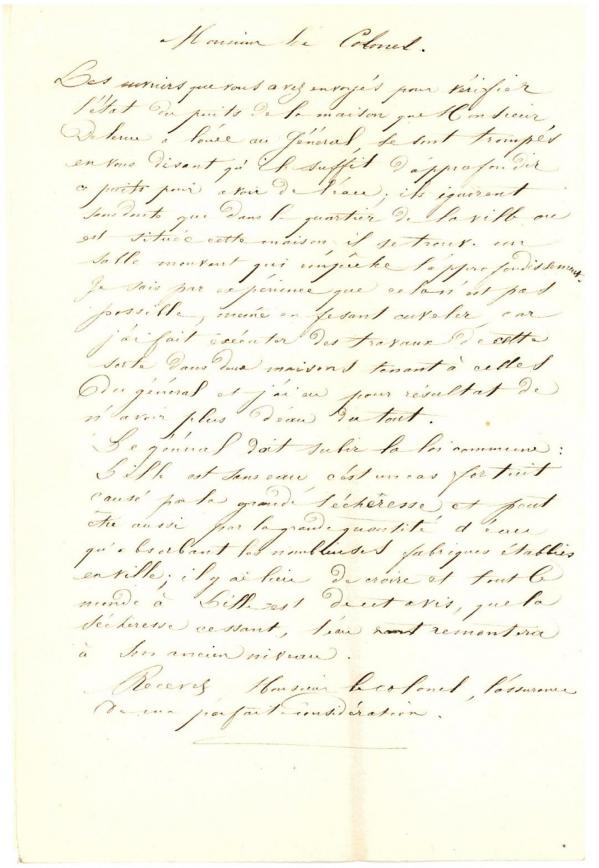 Monsieur le Colonel.
Les ouvriers que vous avez envoyés pour vérifier
l'état du puits de la maison que Monsieur
a louée au Général se sont trompés
en vous disant qu'il suffit d'approfondir
ce puits pour avoir de l'eau; ils ignorent
sans doute que dans le quartier de la ville où
est située cette maison il se trouve un
sable mouvant qui empêche l'approfondissement.
Je sais par expérience que cela n'est pas
possible, même en fesant cuveler, car
j'ai fait exécuter des travaux de cette
sorte dans deux maisons tenant à celles
du général et j'ai eu pour résultat de
n'avoir plus d'eau du tout.
Le général doit subir la loi commune:
Lille est sans eau, c'est un cas fortuit
causé par la grande sécheresse et peut
être aussi par la grande quantité d'eau
qu'absorbant les nombreuses fabriques établies
en ville; il y a lieu de croire et tout le
monde à Lille est de cet avis, que la
sécheresse cessant, l'eau remontera
à son ancien niveau.
Recevez, Monsieur le colonel, l'assurance
de ma parfaite considération.